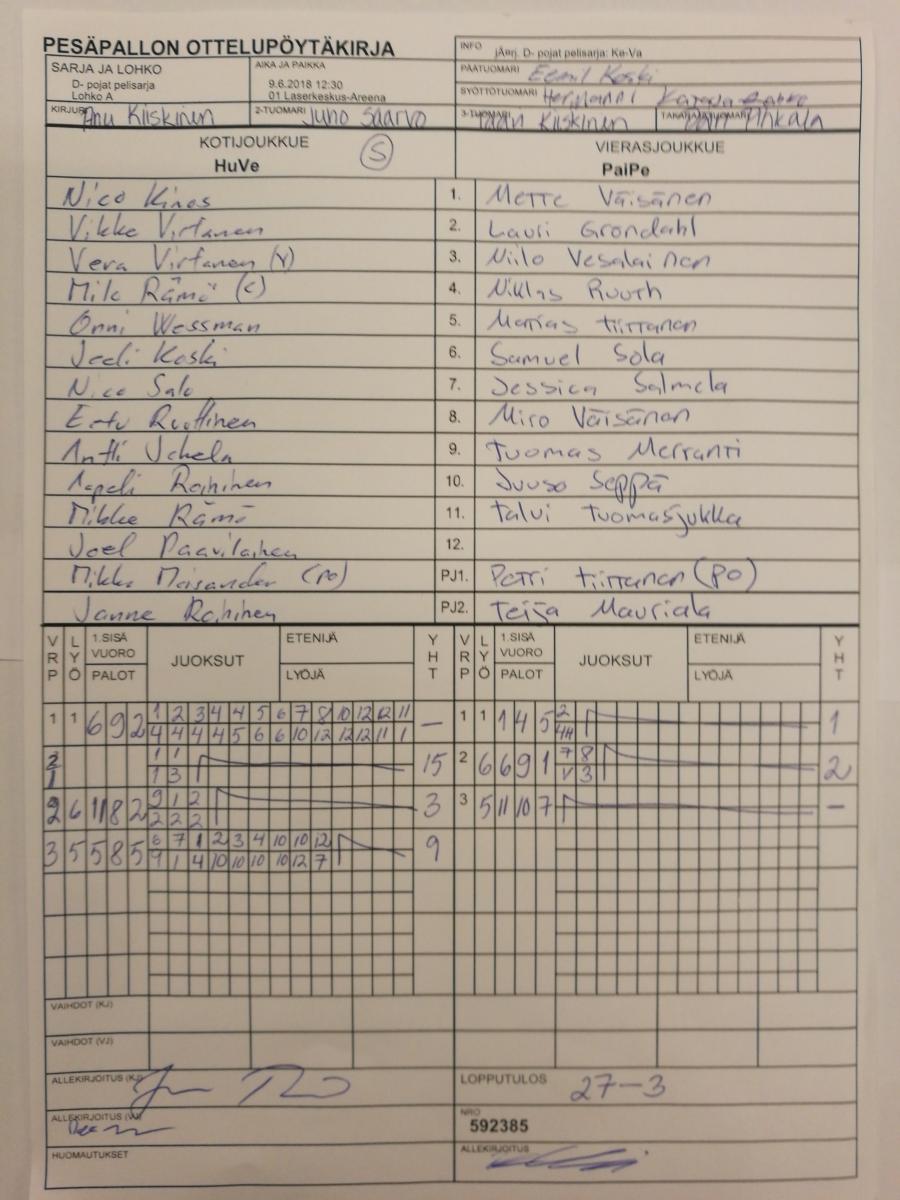 PESÄPALLON OTTELUPÖYTÄKIRJA
INFO jÄrj. D- pojat pelisarja: Ke-Va
SARJA JA LOHKO
D- pojat pelisarja
Lohko A
AIKA JA PAIKKA
9.6.2018 12:30
01 Laserkeskus-Areena
PÄÄTUOMARI Eemil Koski
SYÖTTÖTUOMARI Hermanni
KIRJURI Anu Kiiskinen
2-TUOMARI Juho Saarvo
3-TUOMARI Kiiskinen
TAKARAJATUOMARI
KOTIJOUKKUE
HuVe
S
VIERASJOUKKUE
PaiPe
Nico Kinos 1. Mette Väisänen
Vikke Virtanen 2. Lauri Grondahl
Vera Virtanen (V) 3. Niilo Vesalainen
Milo Rämö (C) 4. Niklas Ruuth
Onni Wessman 5. Matias Tiittanen
Jedi Koski 6. Samuel Sola
Nico Salo 7. Jessica Salmela
Eetu Ruottinen 8. Miro Väisänen
Antti Uchela 9. Tuomas Merranti
Aapeli Roininen 10. Juuso Seppä
Mikke Rämö 11. Talvi Tuomasjukka
Joel Paavilainen 12.
Mikko Maisander (PO) PJ1. Petri Tiittanen (PO)
Janne Roininen PJ2. Teija Mauriala
VRP LYÖ 1.SISÄ VUORO PALOT JUOKSUT ETENIJÄ LYÖJÄ YHT VRP LYÖ 1.SISÄ VUORO PALOT JUOKSUT ETENIJÄ LYÖJÄ YHT
1 1 6 9 2 1 2 3 4 4 5 6 7 8 10 12 12 11 — 1 1 1 4 5 2 1
4 4 4 4 5 6 6 10 12 12 12 11 1 4H
2/1 1 1 15 2 6 6 9 1 7 8 2
1 3 V 3
2 6 11 8 2 9 1 2 3 3 5 11 10 7 —
2 2 2
3 5 5 8 5 6 7 1 2 3 4 10 10 12 9
9 1 4 10 10 10 10 12 7
VAIHDOT (KJ)
VAIHDOT (VJ)
ALLEKIRJOITUS (KJ)
LOPPUTULOS 27-3
ALLEKIRJOITUS (VJ)
NRO
592385
HUOMAUTUKSET
ALLEKIRJOITUS